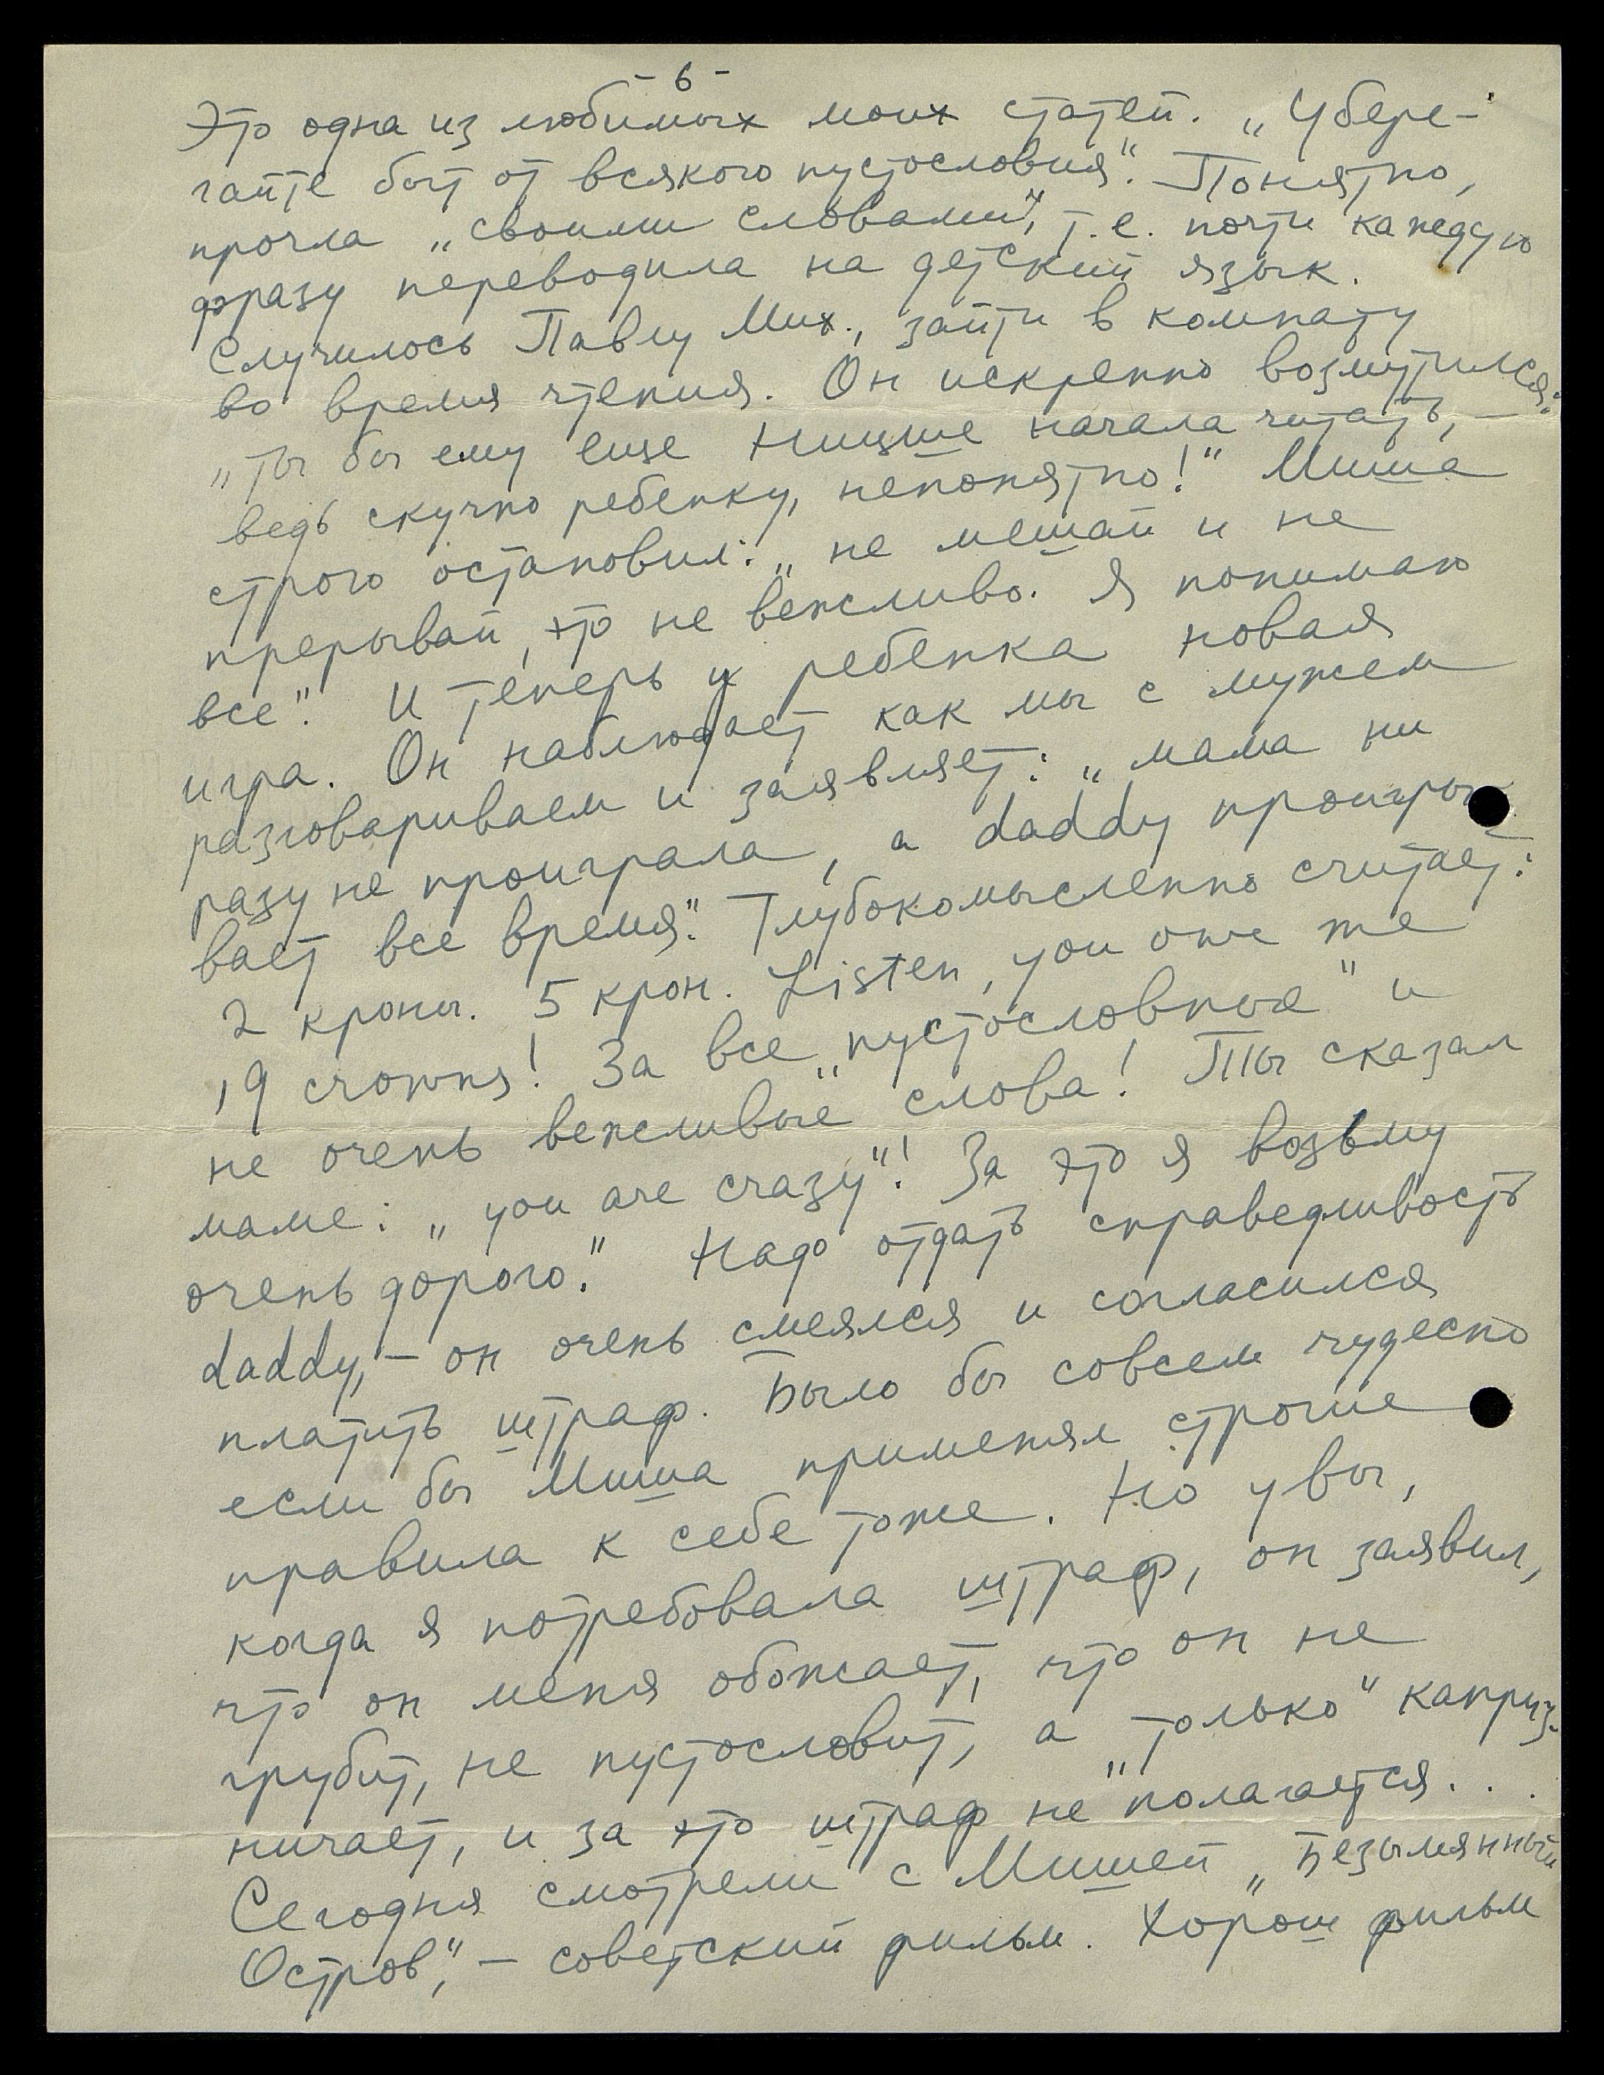 - 6 -
Это одна из любимых моих статей. „Убере-
гайте быт от всякого пустословия“. Понятно,
прочла „своими словами“, т.е. почти каждую
фразу переводила на детский язык.
Случилось Павлу Мих., зайти в комнату
во время чтения. Он искренно возмутился:
„ты бы ему еще Ницше начала читать, –
ведь скучно ребенку, непонятно!“ Миша
строго остановил: „не мешай и не
прерывай, это не вежливо. Я понимаю
все“. И теперь у ребенка новая
игра. Он наблюдает как мы с мужем
разговариваем и заявляет: „мама ни
разу не проиграла, а daddy проигры-
вает все время“. Глубокомысленно считает:
2 кроны. 5 крон. Listen, you owe me
19 crowns! За все „пустословные“ и
не очень вежливые слова! Ты сказал
маме: „you are crazy“! За это я возьму
очень дорого“. Надо отдать справедливость
daddy, – он очень смеялся и согласился
платить штраф. Было бы совсем чудесно
если бы Миша применял строгие
правила к себе тоже. Но увы,
когда я потребовала штраф, он заявил,
что он меня обожает, что он не
грубит, не пустословит, а „только“ каприз-
ничает, и за это штраф не полагается...
Сегодня смотрели с Мишей „Безымянный
Остров“, – советский фильм. Хорош фильм